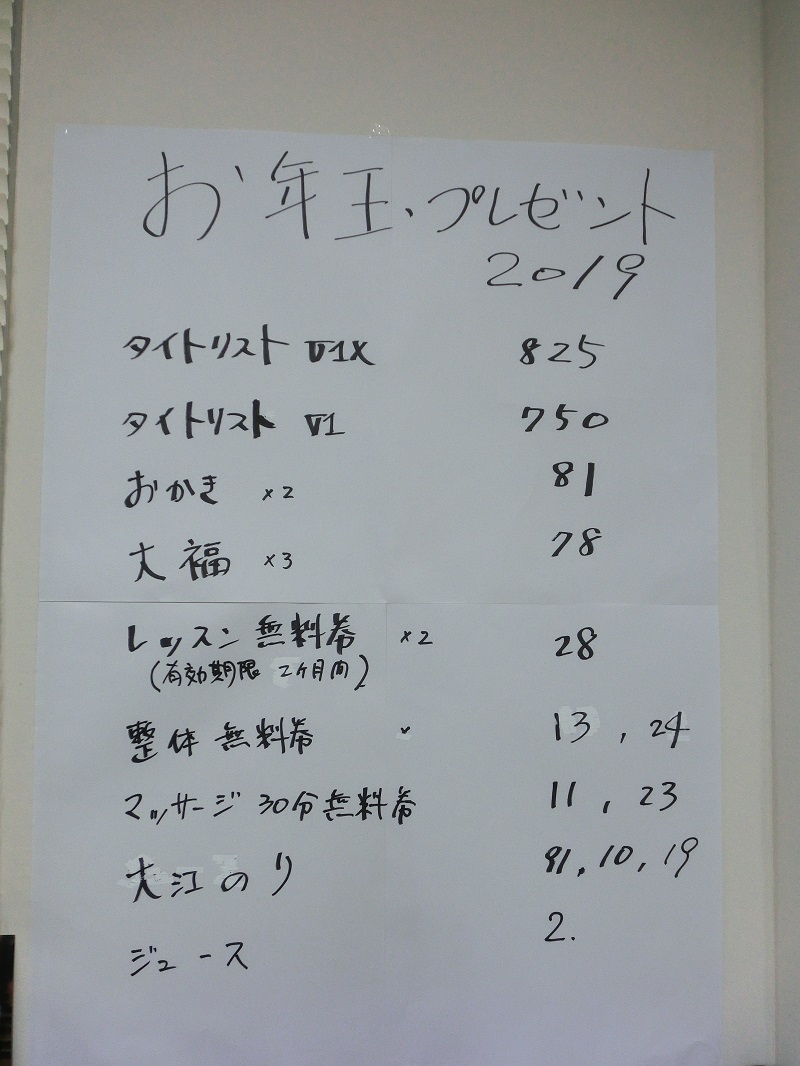 お年玉、プレゼント
2019
タイトリスト V1X 825
タイトリスト V1 750
おかき ×2 81
大福 ×3 78
レッスン 無料券 ×2 28
(有効期限 2ヶ月間)
整体 無料券 13, 24
マッサージ 30分無料券 11, 23
大江のり 91, 10, 19
ジュース 2.